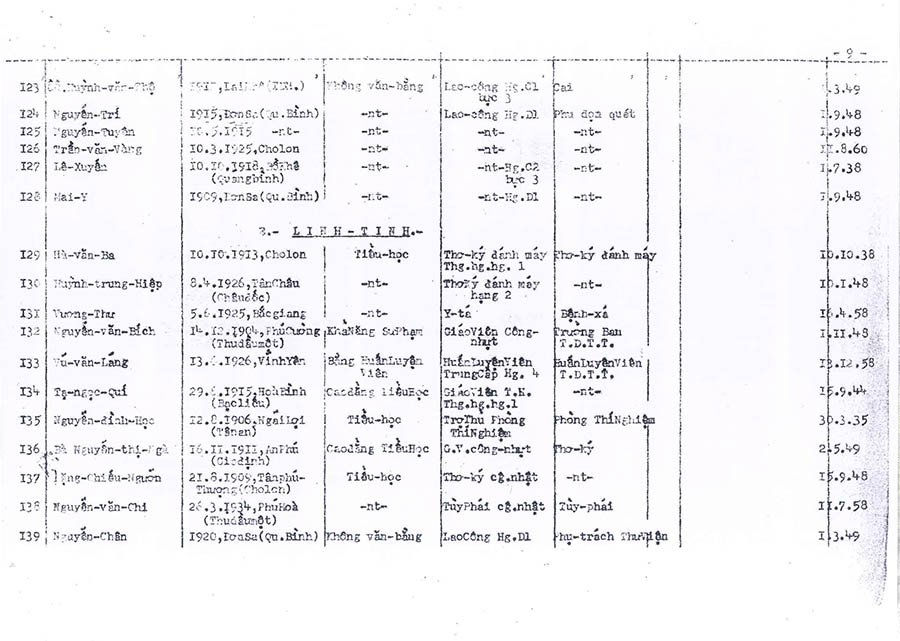 - 9 -
I23 Huỳnh-văn- Không văn-bằng Lao-công Hg.C1 Cai .3.49
bực 3
I24 Nguyễn-Trí I9I5,ĐơnSa(Qu.Bình) -nt- Lao-công Hg.D1 Phu dọn quét I.9.48
I25 Nguyễn-Tuyên .5.I9I5 -nt- -nt- -nt- -nt- I.9.48
I26 Trần-văn-Vàng I0.3.I925,Cholon -nt- -nt- -nt- .8.60
I27 Lê-Xuyến I0.I0.I9I8, -nt- -nt-Hg.C2 -nt- I.7.38
(Quangbình) bực 3
I28 Mai-Y I909,ĐơnSa(Qu.Bình) -nt- -nt-Hg.D1 -nt- .9.48
LINH-TINH.-
I29 Hà-văn-Ba I0.I0.I9I3,Cholon Tiểu-học Thơ-ký đánh máy Thơ-ký đánh máy I0.I0.38
Thg.hg.hg. 1
I30 Huỳnh-trung-Hiệp 8.4.I926,TânChâu -nt- ThơKý đánh máy -nt- I0.I.48
(Châuđốc) hạng 2
I3I Vương-Thư 5.6.I925,Bắcgiang -nt- Y-tá Bệnh-xá .4.58
I32 Nguyễn-văn-Bích I4.I2.I904,PhúCường KhảNăng SưPhạm GiáoViên Công- Trưởng Ban I.II.48
(Thudầumột) nhựt T.D.T.T.
I33 Vũ-văn-Lắng .I926,VĩnhYên Bằng HuấnLuyện HuấnLuyệnViên HuấnLuyệnViên .I2.58
Viên TrungCấp Hg. 4 T.D.T.T.
I34 Tạ-ngọc-Quí .I9I5,HoàBình Caođẳng TiểuHọc GiáoViên T.H. -nt- I5.9.44
(Bạcliêu) Thg.hg.hg.1
I35 Nguyễn-đình-Học I2.8.I906,NgãiLợi Tiểu-học TrợThủ Phòng Phòng ThíNghiệm 30.3.35
(Tânan) ThíNghiệm
I36 Bà Nguyễn-thị-Ngà I6.II.I9II,AnPhú Caođẳng TiểuHọc G.V.công-nhựt Thơ-ký 2.5.49
(Giađịnh)
I37 Chiêu-Nguơn 2I.8.I909,Tânphú- Tiểu-học Thơ-ký cg.nhật -nt- I5.9.48
Thượng(Cholon)
I38 Nguyễn-văn-Chi 26.3.I934,PhúHoà -nt- TùyPhái cg.nhật Tùy-phái .7.58
(Thudầumột)
I39 Nguyễn-Chân I920,ĐơnSa(Qu.Bình) Không văn-bằng LaoCông Hg.D1 Phụ-trách ThưViện I.3.49